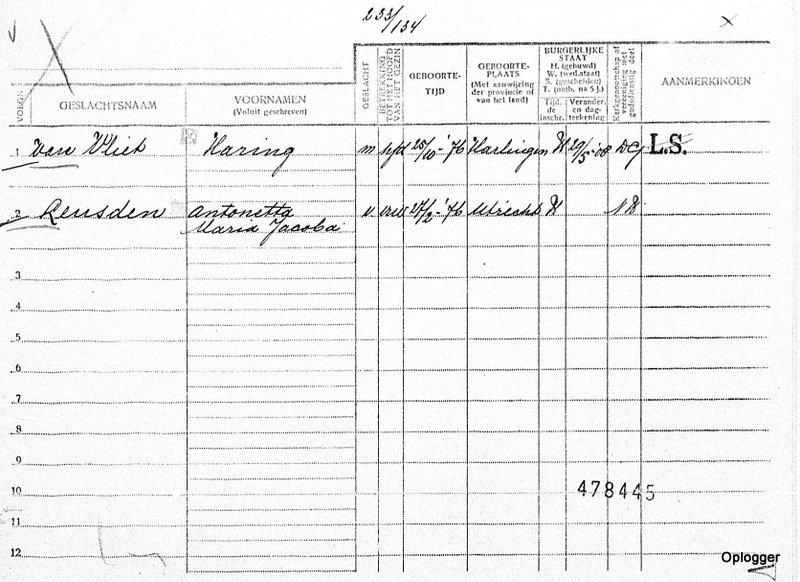 233/134
GESLACHTSNAAM
VOORNAMEN
(Voluit geschreven)
GESLACHT
BETREKKING TOT HET HOOFD VAN HET GEZIN
GEBOORTE-
TIJD
GEBOORTE-
PLAATS
(Met aanwijzing
der provincie of
van het land)
BURGERLIJKE
STAAT
H. (gehuwd)
W. (wed.staat)
S. (gescheiden)
T. (ontb. na 5 j.)
Tijd. de inschr.
Verander. en dag-teekening
Kerkgenootschap of vereeniging met godsdienstig doel
AANMERKINGEN
VOLGN.
1 van Vliet Haring m hfd 25/10-'76 Harlingen H 29/5-'08 DG L.S.
2 Leusden Antonetta v vrw 27/2-'76 Utrecht H NH
Maria Jacoba
3
4
5
6
7
8
9
10 478445
11
12
Oplogger